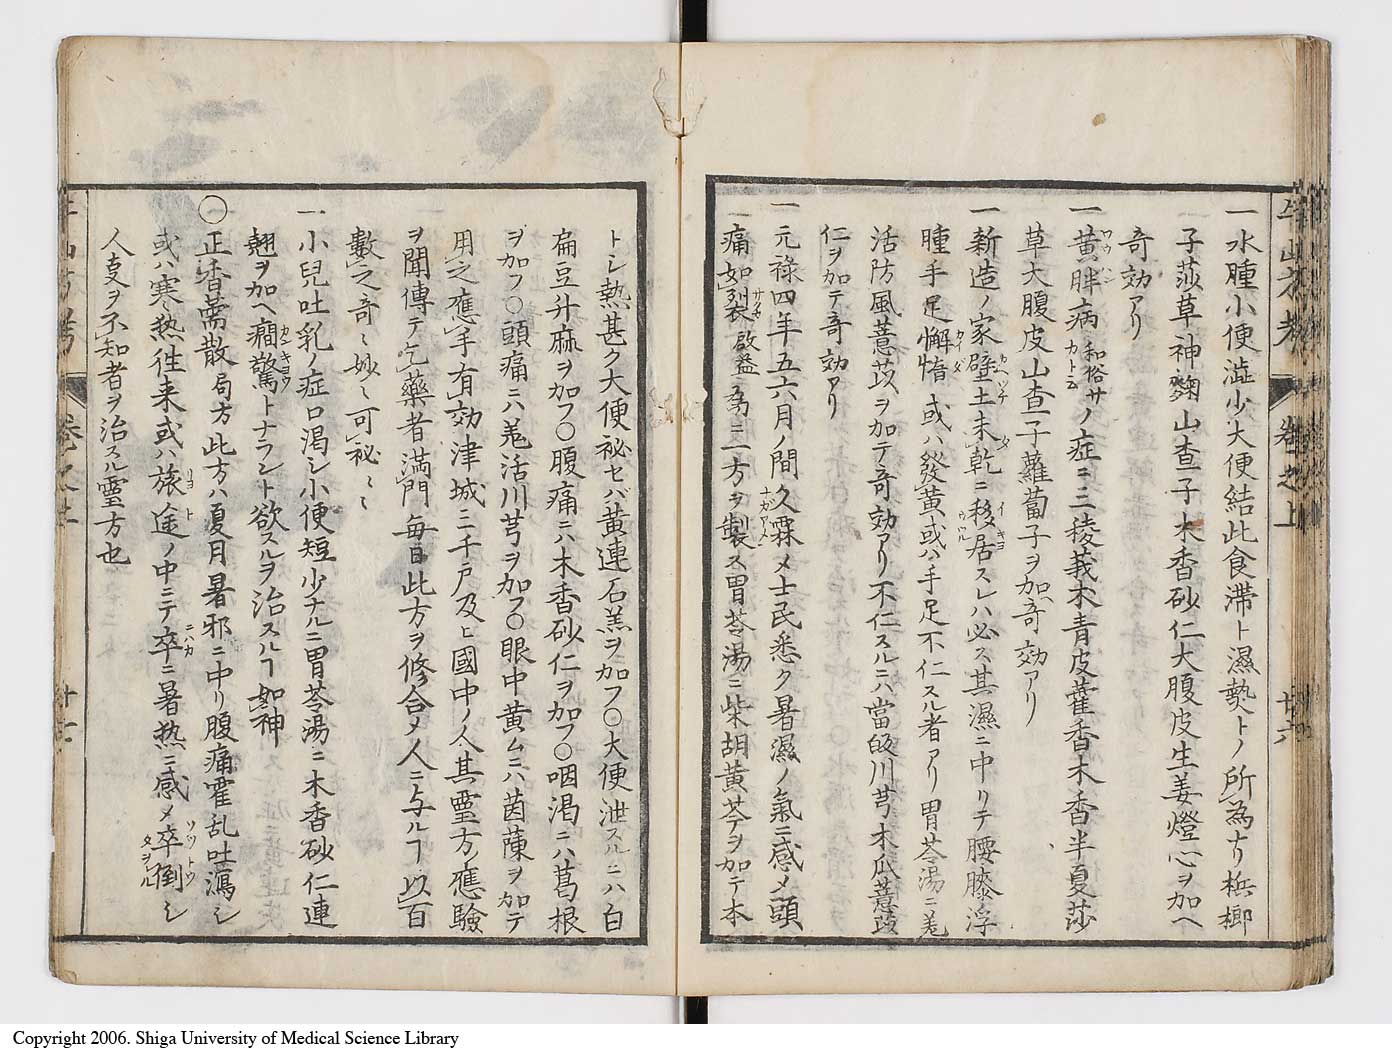 一水腫小便澁少大便結此食滞ト濕熱トノ所為ナリ梹榔
子莎草神麹山查子木香砂仁大腹皮生姜燈心ヲ加ヘ
奇効アリ
一黄胖病和俗サカトニ云ノ症ニ三稜莪朮青皮藿香木香半夏莎
草大腹皮山查子蘿蔔子ヲ加ヘ奇効アリ
一新造ノ家壁土未乾ニ移居スレハ必ス其濕ニ中リテ腰膝浮
腫手足懈惰或ハ發黄或ハ手足不仁スル者アリ胃苓湯ニ羌
活防風薏苡ヲ加テ奇効アリ不仁スルニハ當皈川芎木瓜薏苡
仁ヲ加テ奇効アリ
一元祿四年五六月ノ間久霖メ士民悉ク暑濕ノ氣ニ感メ頭
痛如裂啟益為ニ一方ヲ製ス胃苓湯ニ柴胡黄芩ヲ加テ本
牛山方考 卷之上 廿六
トシ熱甚ク大便祕セバ黄連石羔ヲ加フ〇大便泄スルニハ白
扁豆升麻ヲ加フ〇腹痛ニハ木香砂仁ヲ加フ〇咽渇ニハ葛根
ヲ加フ〇頭痛ニハ羌活川芎ヲ加フ〇眼中黄ムニハ茵蔯ヲ加テ
用之應手有効津城二千戸及ヒ國中ノ人其靈方應驗
ヲ聞傳テ乞藥者満門毎日此方ヲ修合メ人ニ与ルヿ以百
數之奇〻妙〻可祕〻〻
一小兒吐乳ノ症口渇シ小便短少ナルニ胃苓湯ニ木香砂仁連
翹ヲ加ヘ癇驚トナラント欲スルヲ治スルヿ如神
〇正香薷散局方此方ハ夏月暑邪ニ中リ腹痛霍乱吐瀉シ
或ハ寒熱徃来或ハ旅途ノ中ニテ卒ニ暑熱ニ感メ卒倒シ
人支ヲ不知者ヲ治スル靈方也